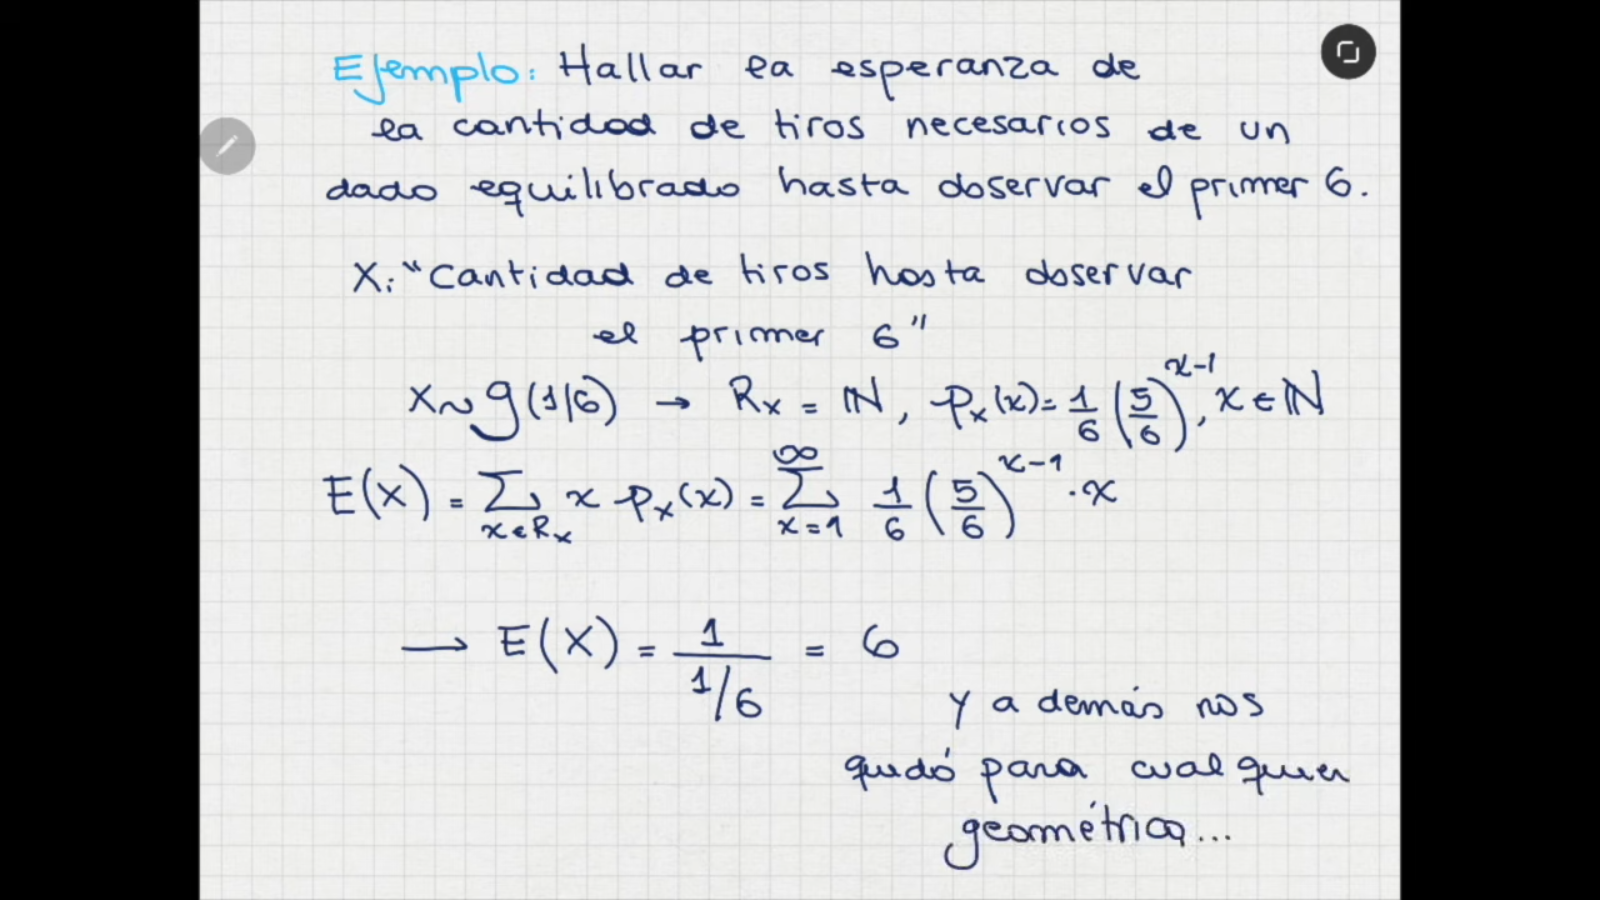 Ejemplo: Hallar la esperanza de
la cantidad de tiros necesarios de un
dado equilibrado hasta observar el primer 6.
X: "Cantidad de tiros hasta observar
el primer 6"
X ~ g(1/6) → Rₓ = ℕ, pₓ(x) = 1/6 (5/6)^(x-1), x ∈ ℕ
E(X) = Σ_{x∈Rₓ} x pₓ(x) = Σ_{x=1}^{∞} 1/6 (5/6)^(x-1) · x
→ E(X) = 1/(1/6) = 6
Y además nos
quedó para cualquier
geométrica...